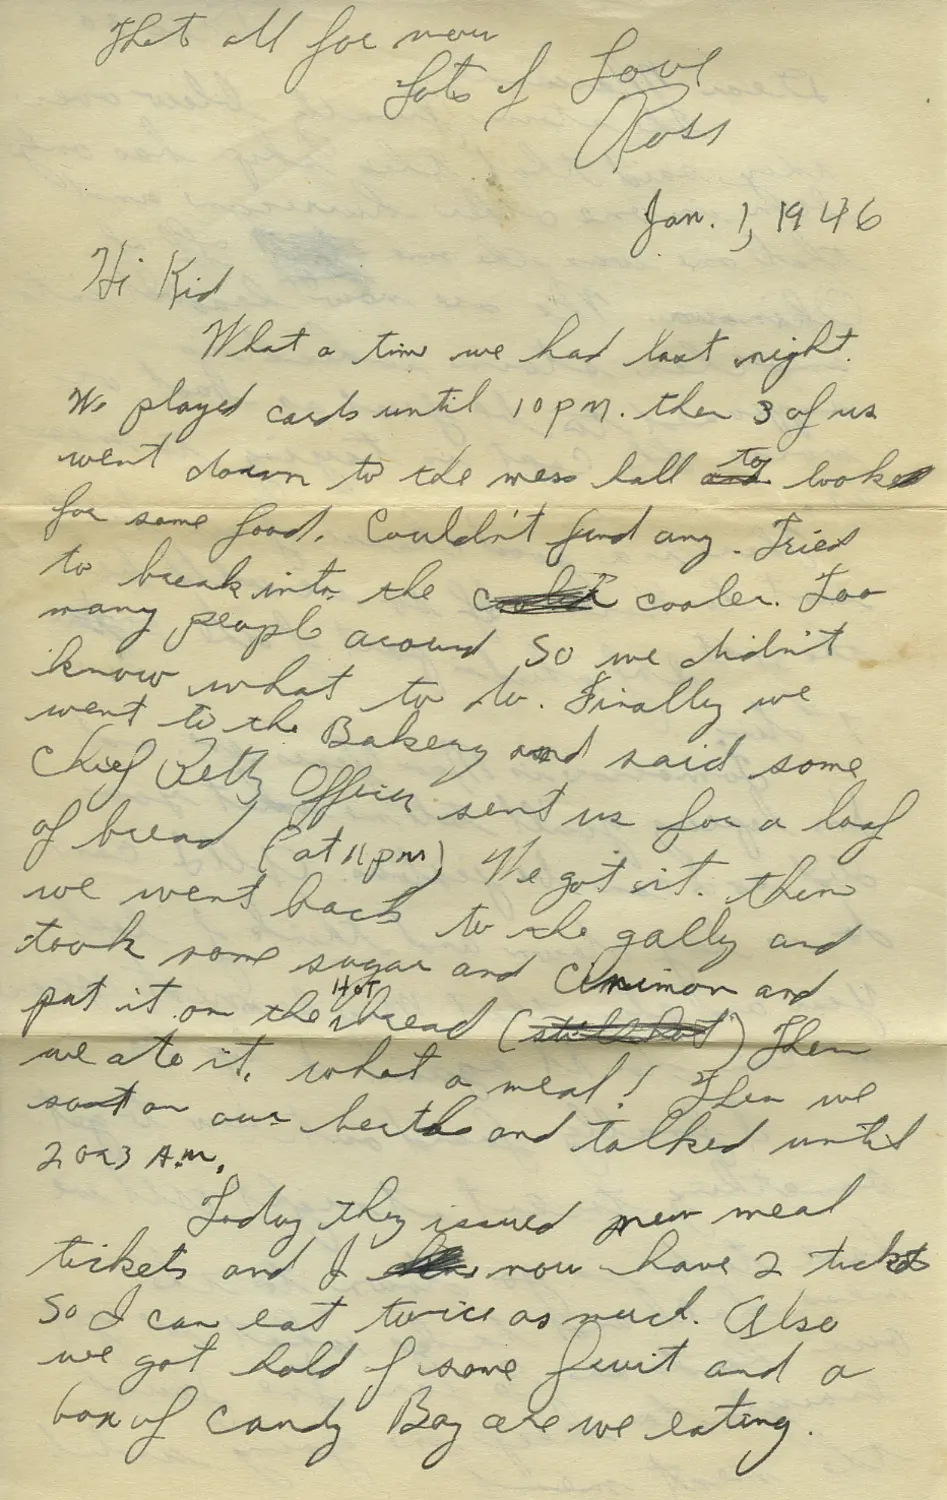 That all for now
Lots of Love
Ross
Jan. 1, 1946
Hi Kid
What a time we had last night.
We played cards until 10 P M. then 3 of us
went down to the mess hall to look
for some food. Couldn't find any. Tried
to break into the cooler. Too
many people around so we didn't
know what to do. Finally we
went to the Bakery and said some
Chief Petty Officer sent us for a loaf
of bread (at 11 pm) We got it. then
we went back to the gally and
took some sugar and Cinnimon and
put it on the Hot bread (still hot) Then
we ate it. what a meal! Then we
sat on our berths and talked until
2 or 3 A.M.
Today they issued new meal
tickets and I now have 2 tickets
so I can eat twice as much. Also
we got hold of some fruit and a
box of candy Boy are we eating.